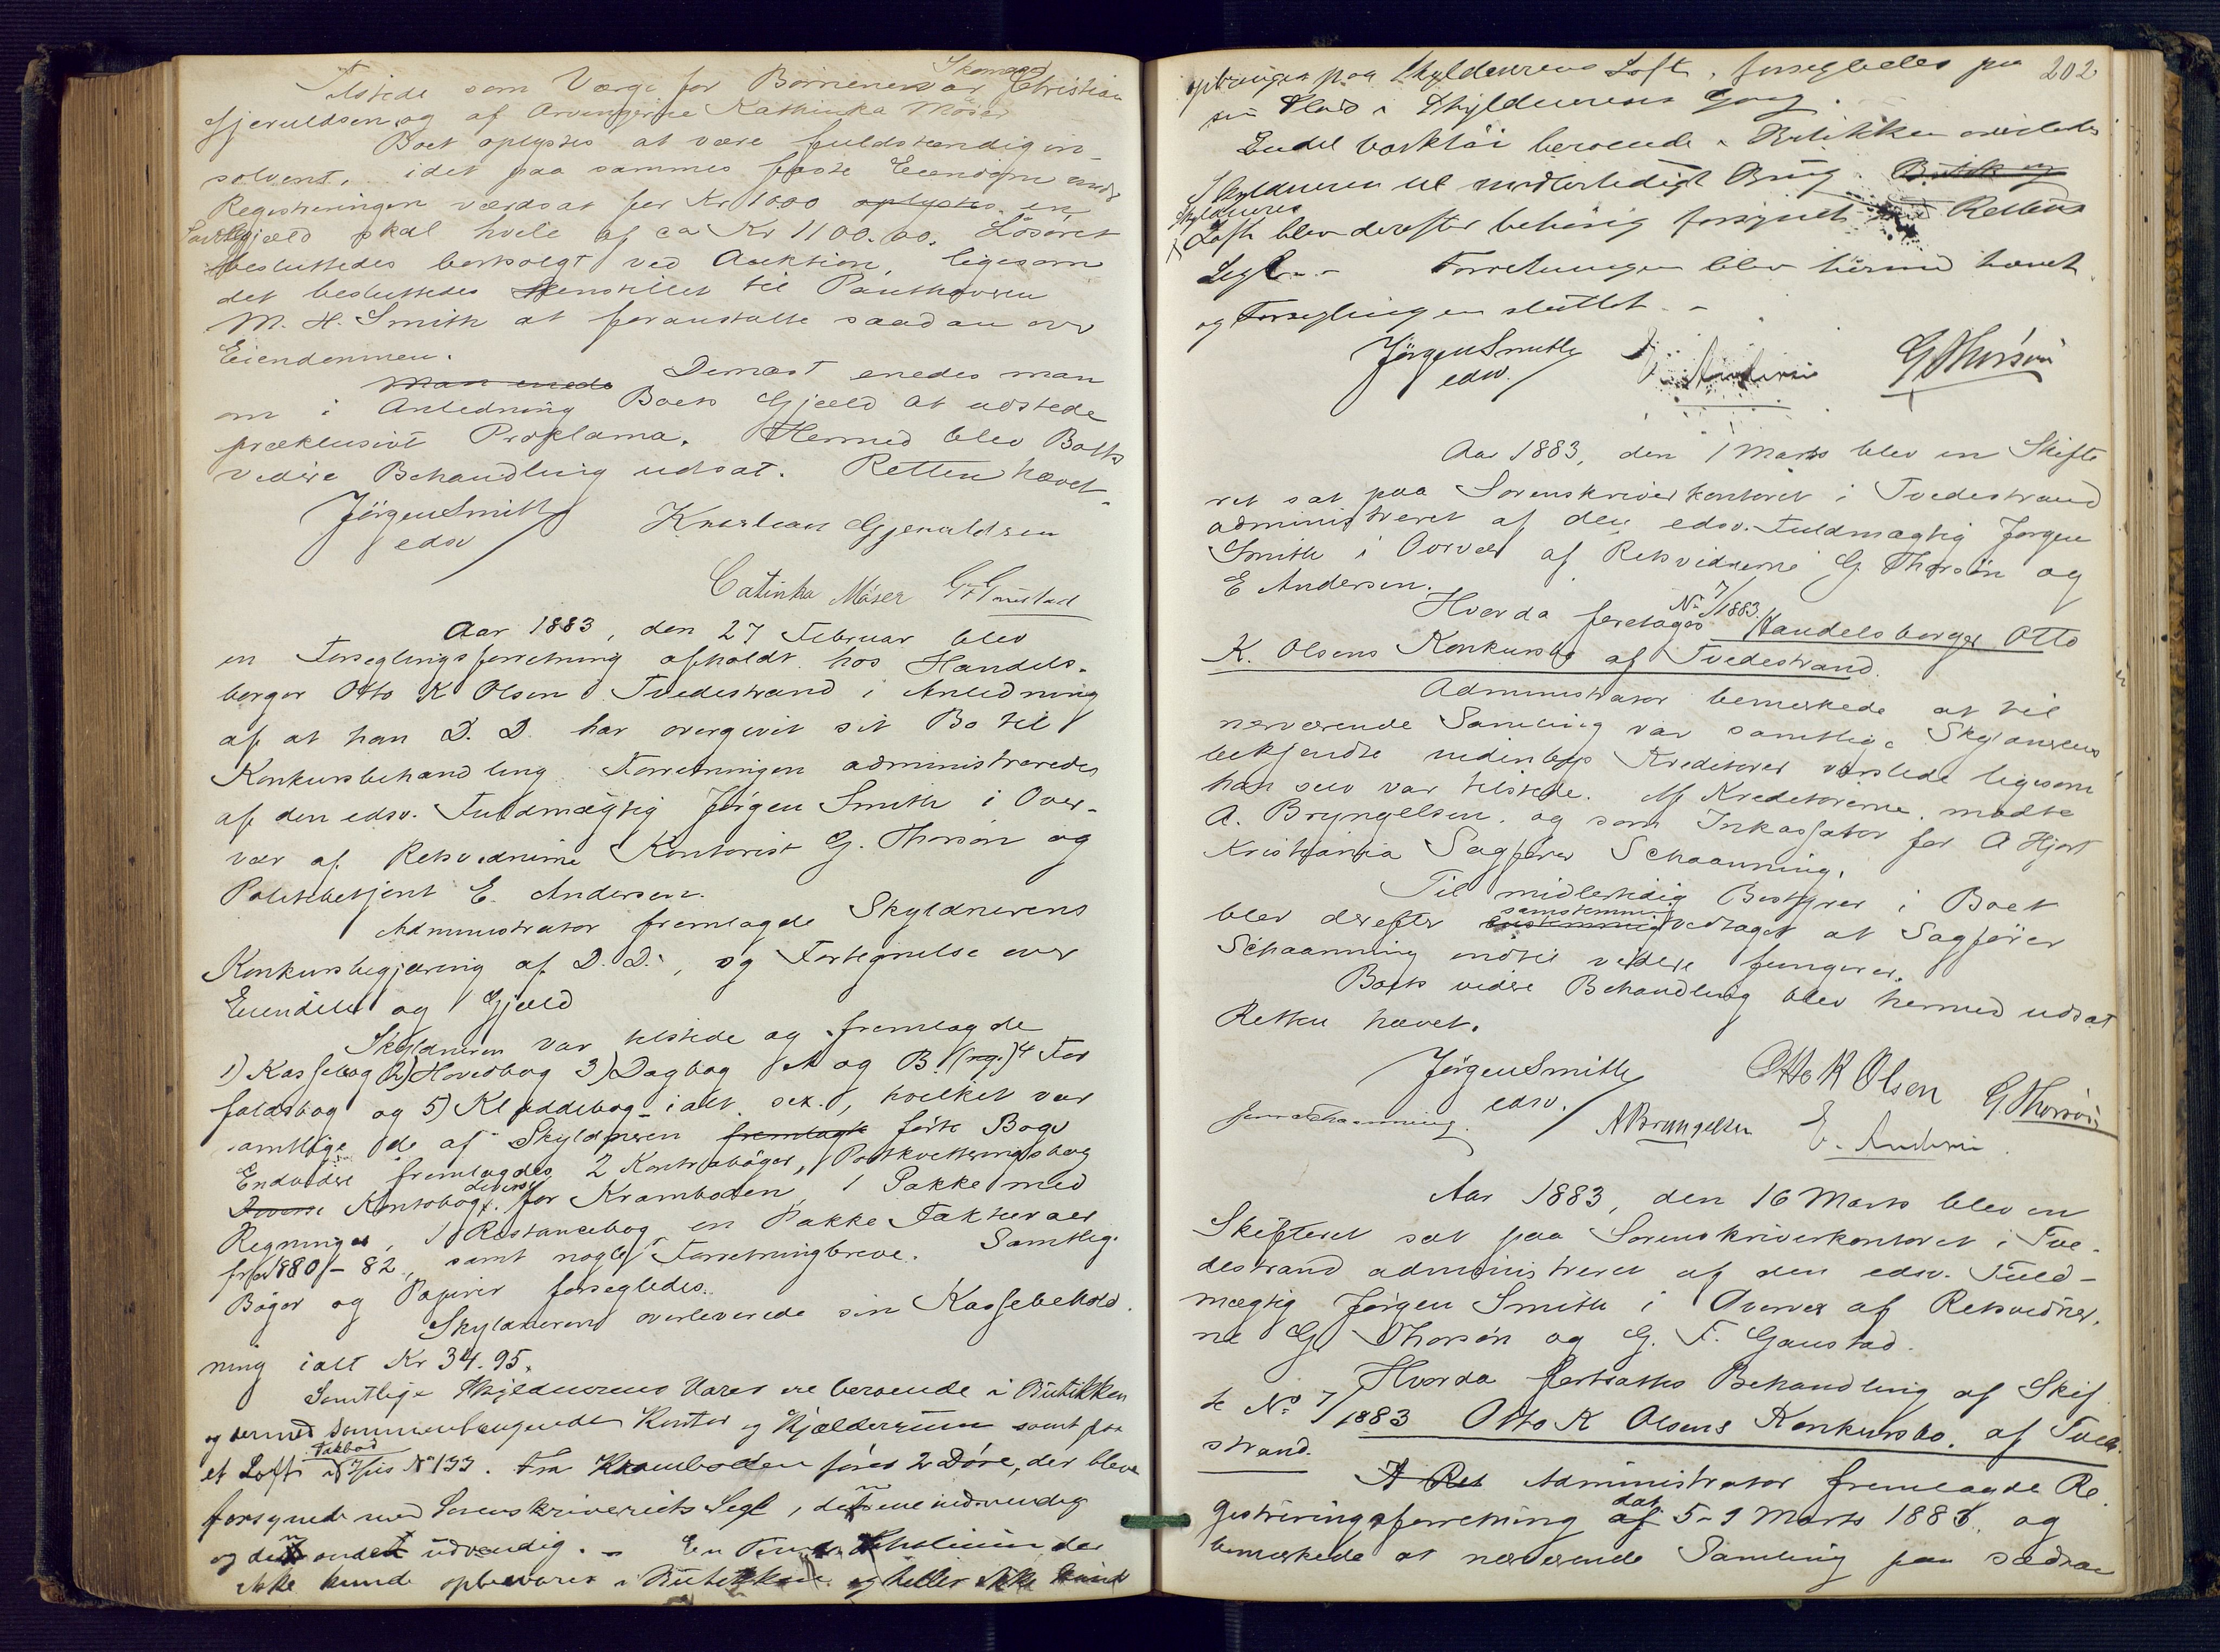 Tilstede som Værge for Börnene var Skomager Christian
Gjeruldsen, og af Arvingerne Kathinka Möser
Boet oplystes at være fuldstændig in-
solvent, idet paa sammes faste Eiendom under
Registreringen værdsat for Kr 1000 oplystes en
Gjæld skal hvile af ca Kr 1100.00. Lösöret
besluttedes bortsolgt ved Auktion, ligesom
det besluttedes henstillet til Panthaveren
M. H. Smith at foranstalte saadan over
Eiendommen.
Man enedes Dernæst enedes man
om i Anledning Boets Gjæld at udstede
præklusivt Proklama. Hermed blev Boets
videre Behandling udsat. Retten hævet.
Jörgen Smith Kristian Gjeruldsen
edsv
Catinka Möser G F Gaustad
Aar 1883, den 27 Februar blev
en Forseglingsforretning afholdt hos Handels-
borger Otto K Olsen i Tvedestrand i Anledning
af at han D. D. har overgivet sit Bo til
Konkursbehandling. Forretningen administreredes
af den edsv. Fuldmægtig Jörgen Smith i Over-
vær af Retsvidnerne Kontorist G. Thorsön og
Politibetjent E. Andersen.
Administrator fremlagde Skyldnerens
Konkursbegjæring af D. D., og Fortegnelse over
Eiendele og Gjæld
Skyldneren var tilstede og fremlagde
1) Kassebog 2) Hovedbog 3) Dagbog A og B. (reg.) 4 For
faldsbog og 5) Kladdebog - ialt sex., hvilket var
samtlige de af Skyldneren fremlagte förte Bøger
Endvidere fremlagdes 2 Kontraböger, Postkvitteringsbog
Diverse Kontobøger diverse for Kramboden, 1 Pakke med
Regninger, 1 Restancebog en Pakke Fakturaer
fra 1880 - 82, samt nogle Forretningbreve. Samtlige
Böger og Papirer forsegledes.
Skyldneren overleverede sin Kassebehold
ning ialt Kr 34.95.
Samtlige Skyldnerens Varer ere beroende i Butikken
og dermed sammenhængende Kontor og Kjælderrum samt paa
et Loft i Huus No 133. Fra Kramboden förer 2 Döre, der bleve
forsynede med Sorenskriveriets Segl, den ene indvendig
og den anden udvendig. - En Tønde der
ikke kunde opbevares i Butikken og heller ikke kunde
202
opbringes paa Skyldnerens Loft, forsegledes paa
sin Plads i Skyldnerens Gang.
Endel Verktöi beroende i Butikken overlodes
Skyldneren til midlertidigt Brug. Butik og
Skyldnerens
Loft blev derefter behörig forsynet med Rettens
Segl. - Forretningen blev hermed hævet
og Forseglingen sluttet. -
Jörgen Smith E. Andersen G Thorsön
edsv.
Aar 1883, den 1 Marts blev en Skifte
ret sat paa Sorenskriverkontoret i Tvedestrand
administreret af den edsv. Fuldmægtig Jørgen
Smith i Overvær af Retsvidnerne G. Thorsön og
E Andersen.
Hvor da foretoges No 7/1883. Handelsborger Otto
K. Olsens Konkursbo af Tvedestrand.
Administrator bemerkede at til
nærværende Samling var samtlige Skyldnerens
bekjendte indenbys Kreditorer varslede ligesom
han selv var tilstede. Af Kreditorerne mødte
A. Bryngelsen. og som Inkassator for A Hjort
Kristiania Sagfører Schaanning.
Til midlertidig Bestyrer i Boet
blev derefter enstemmig samstemmig vedtaget at Sagfører
Schaanning indtil videre fungerer.
Boets videre Behandling blev hermed udsat
Retten hævet.
Jörgen Smith Otto K Olsen G. Thorsön
edsv.
Schaanning. ABryngelsen E. Andersen
Aar 1883, den 16 Marts blev en
Skifteret sat paa Sorenskriverkontoret i Tve-
destrand administreret af den edsv. Fuld-
mægtig Jörgen Smith i Overvær af Retsvidner-
ne G. Thorsön og G. F. Gaustad.
Hvor da fortsattes Behandling af Skif
te No 7/1883 Otto K Olsens Konkursbo. af Tvede
strand.
I Ret Administrator fremlagde Re
gistreringsforretning af dat 5-9 Marts 1883. og
bemerkede at nærværende Samling paa sædvan